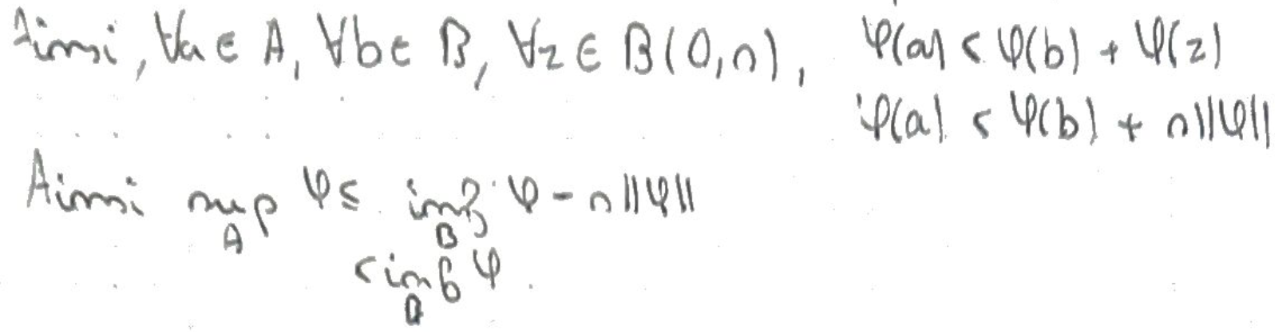 Ainsi, ∀a ∈ A, ∀b ∈ B, ∀z ∈ B(0,r), φ(a) < φ(b) + φ(z)
φ(a) < φ(b) + r||φ||
Ainsi sup_A φ ≤ inf_B φ - r||φ||
< inf_B φ.